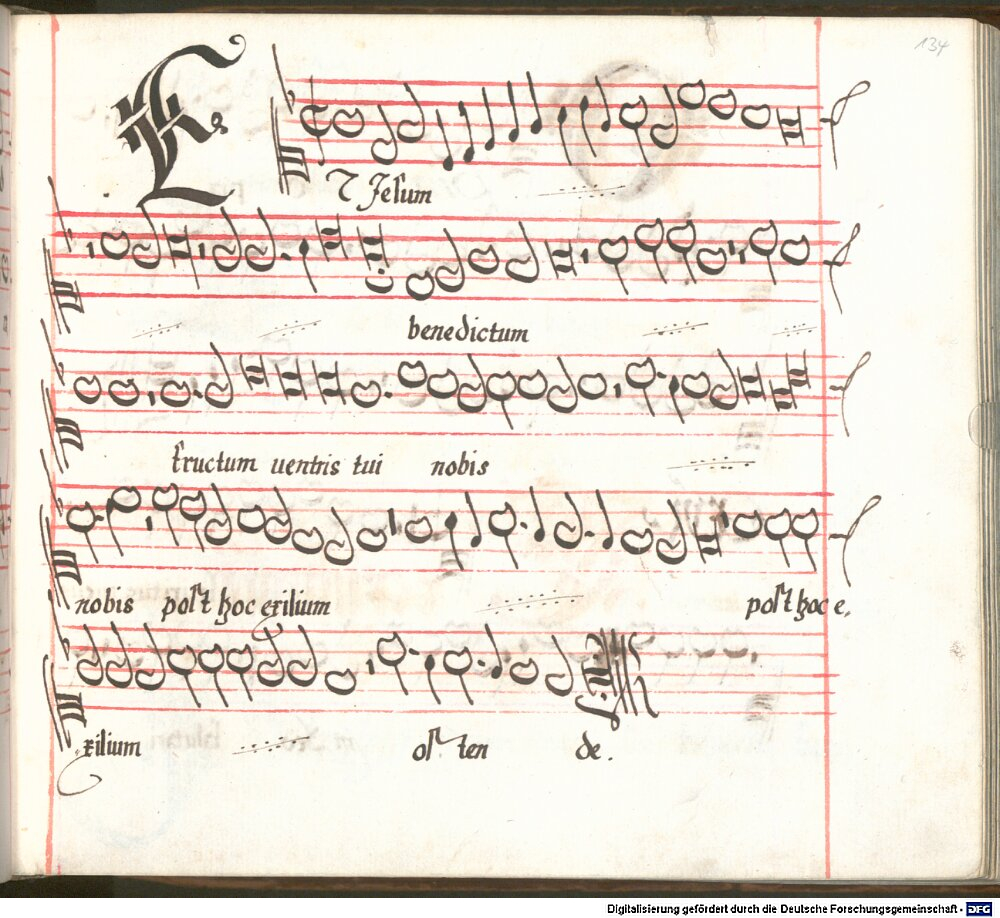 134
Et Jesum
benedictum
fructum uentris tui nobis
nobis post hoc exilium post hoc e.
exilium osten de.
Digitalisierung gefördert durch die Deutsche Forschungsgemeinschaft - DFG